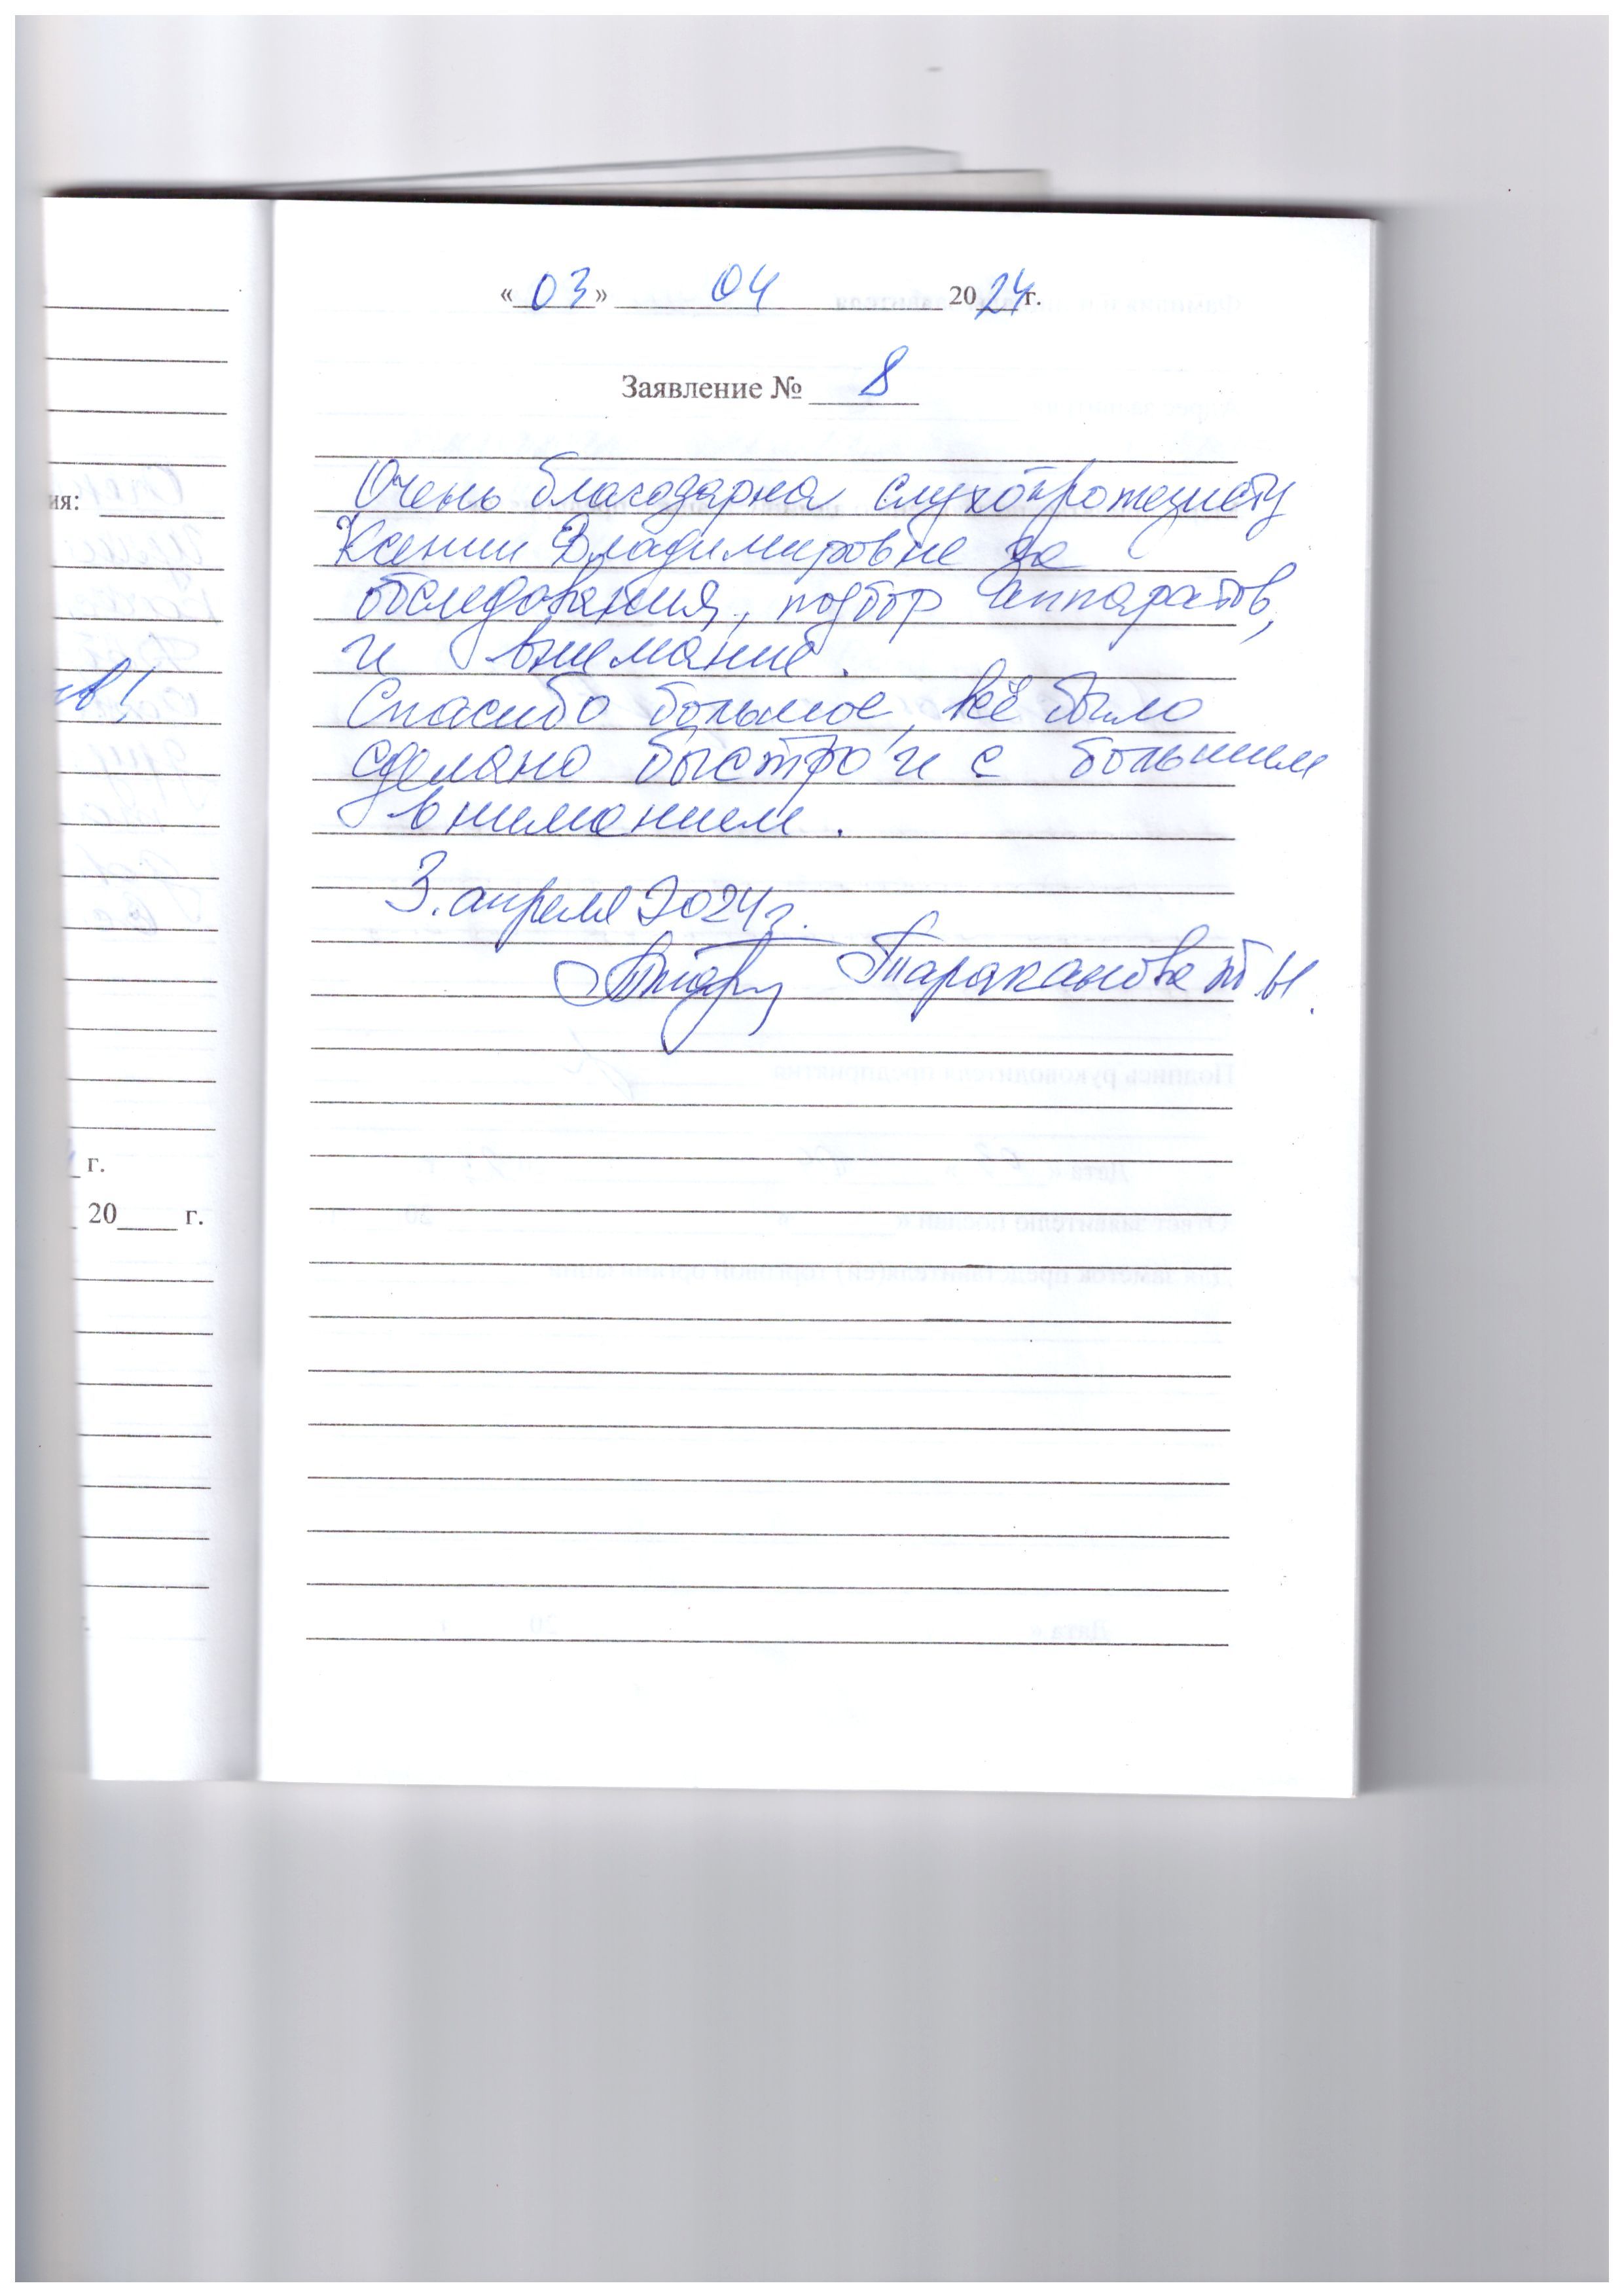 «03» 04 2024 г.
Заявление № 8
Очень благодарна слухопротезисту
Ксении Владимировне за
обследования, подбор аппаратов,
и внимание.
Спасибо большое, всё было
сделано быстро и с большим
вниманием.
3. апреля 2024 г.
Тараканова Т.Н.
ия:
г.
20 г.